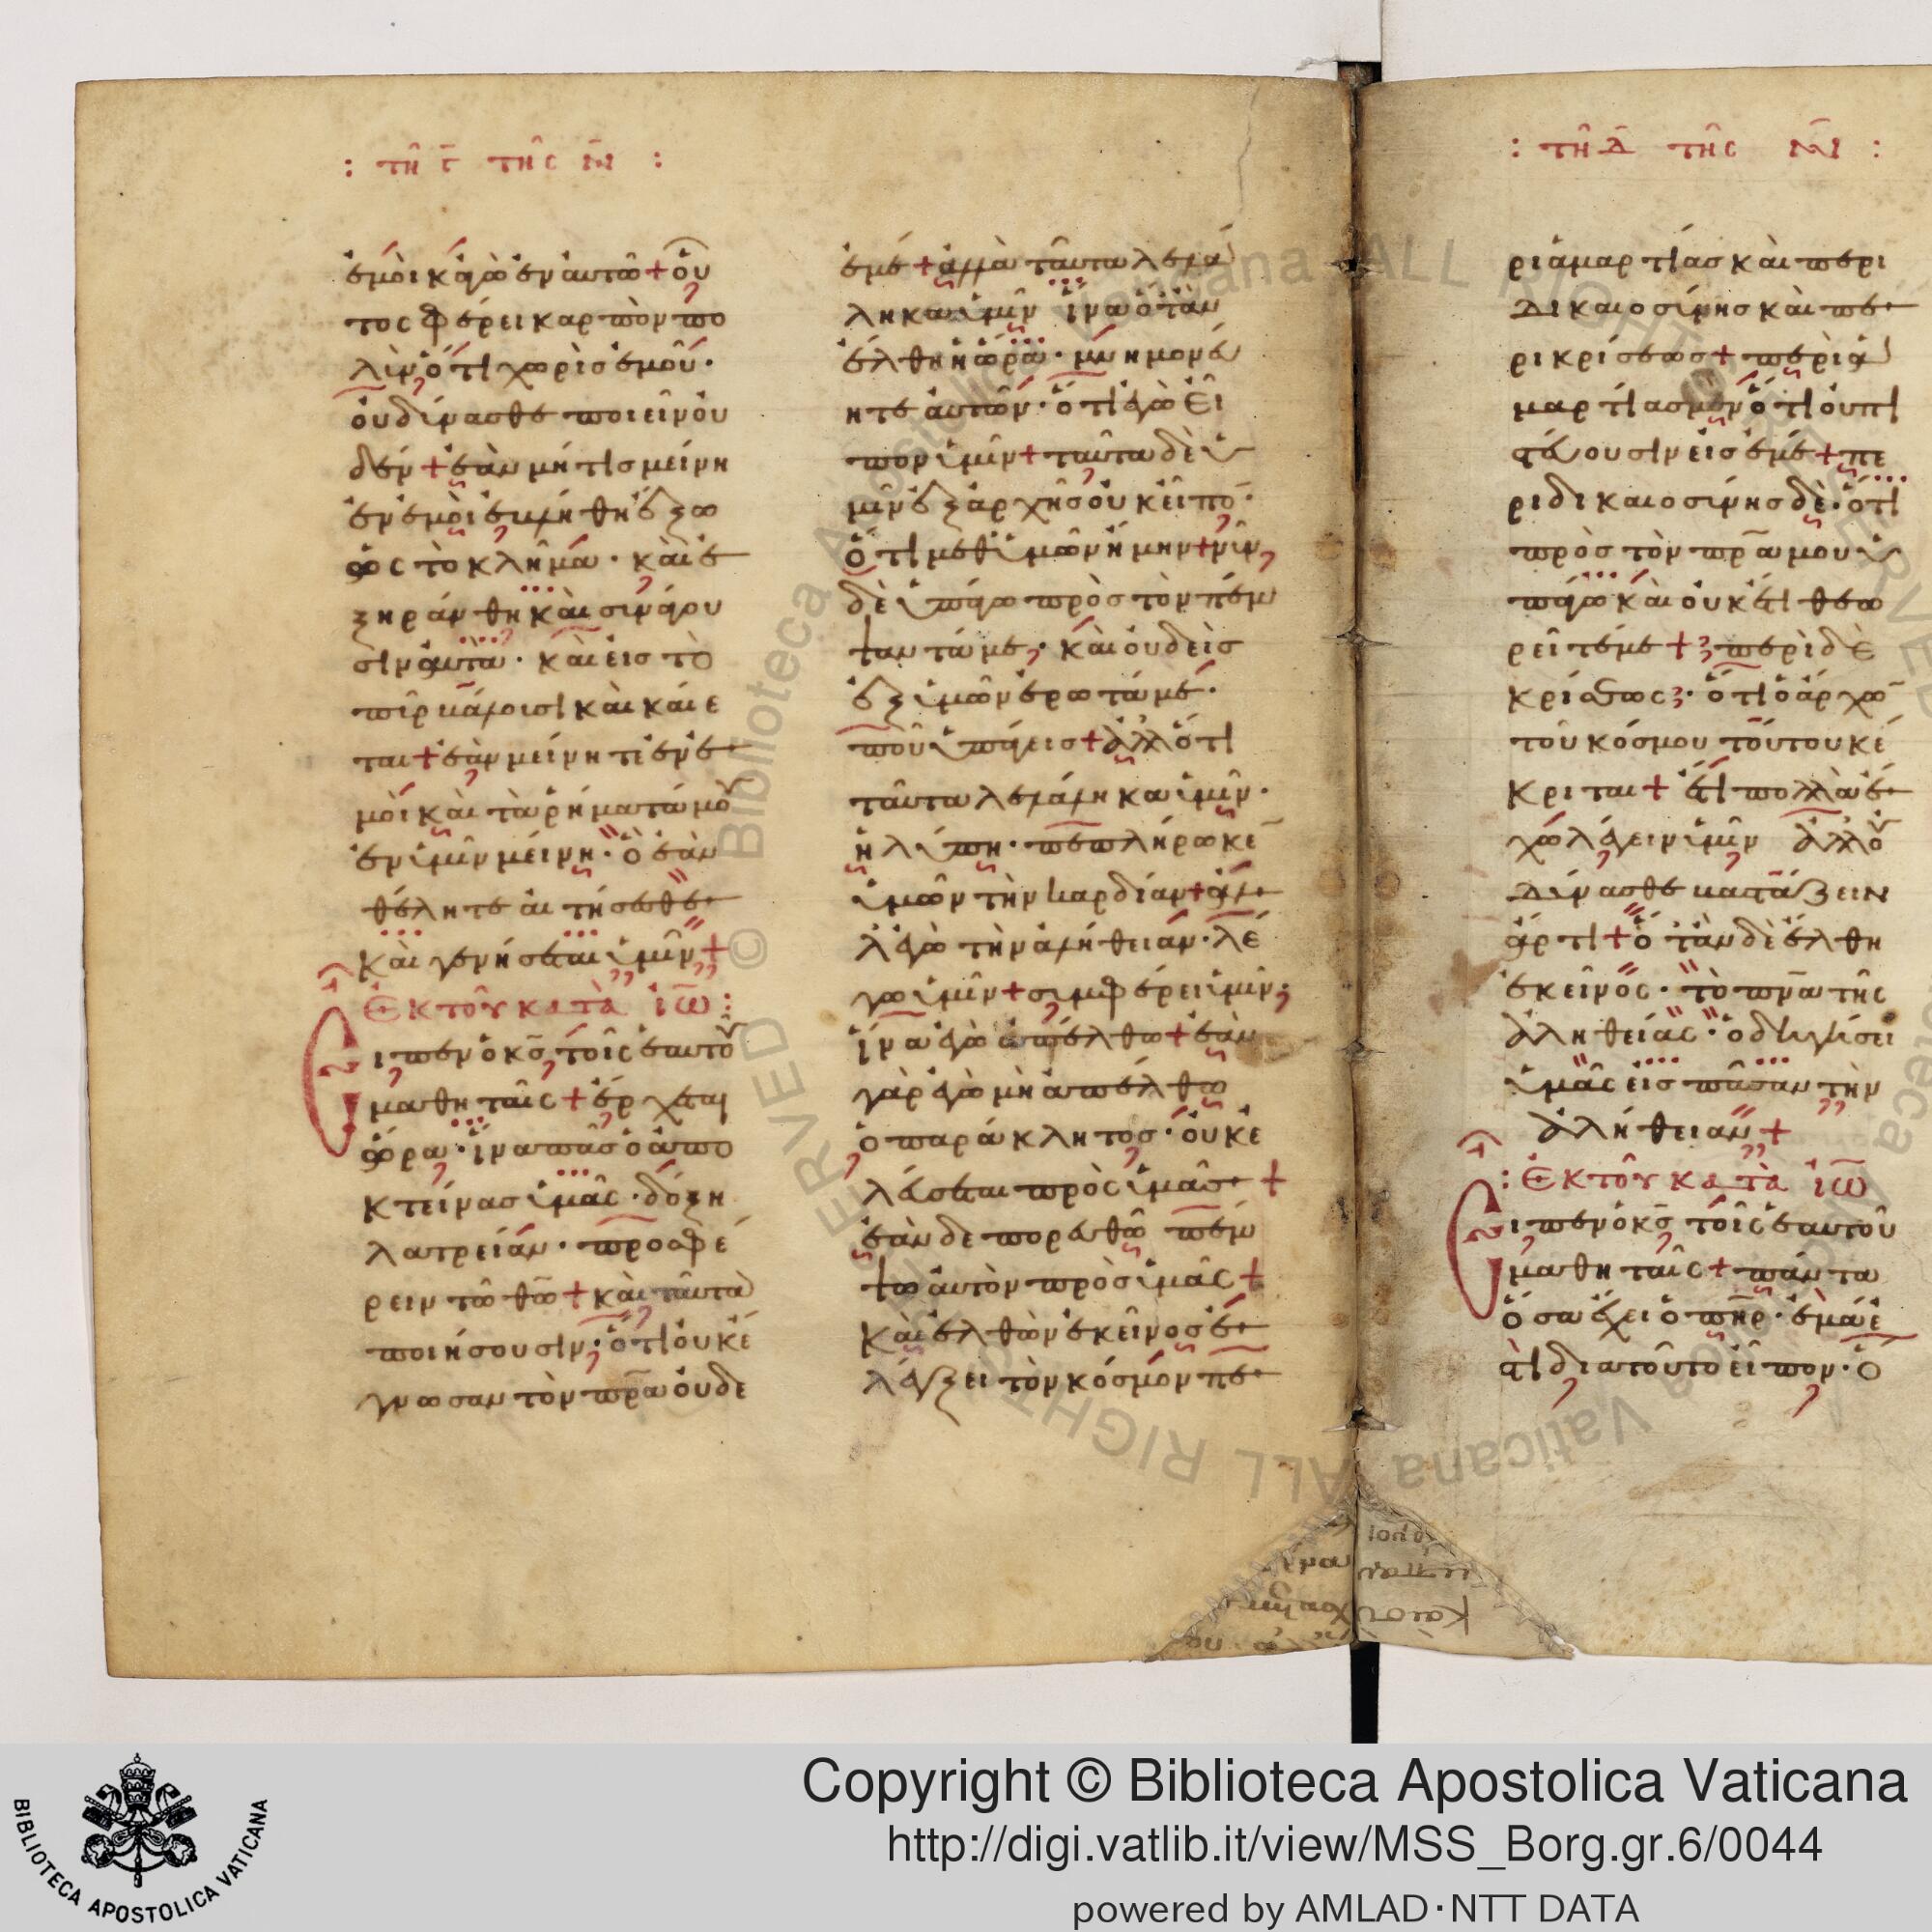 : τῆ ς̄ τῆς ν̄ :
ἐμοὶ κἀγὼ ἐν αὐτῶ + οὗ
τος φέρει καρπὸν πο
λὺν ὅτι χωρὶς ἐμοῦ ·
οὐ δύνασθε ποιεῖν οὐ
δέν + ἐὰν μή τις μείνη
ἐν ἐμοὶ ἐβλήθη ἔξω
ὡς τὸ κλῆμα · καὶ ἐ
ξηράνθη καὶ συνάγου
σιν αὐτὰ · καὶ εἰς τὸ
πῦρ βάλουσι καὶ καίε
ται + ἐὰν μείνητε ἐν ἐ
μοὶ καὶ τὰ ῥήματά μου
ἐν ὑμῖν μείνη · ὃ ἐὰν
θέλητε αἰτήσασθε
καὶ γενήσεται ὑμῖν +
Ἐκ τοῦ κατὰ ἰω̄ :
Εἶπεν ὁ κς̄ τοῖς ἑαυτοῦ
μαθηταῖς + ἔρχεται
ὥρα · ἵνα πᾶς ὁ ἀπο
κτείνας ὑμᾶς · δόξη
λατρείαν · προσφέ
ρειν τῶ θῶ + καὶ ταῦτα
ποιήσουσιν · ὅτι οὐκ ἔ
γνωσαν τὸν πρ̄α οὐδὲ
ἐμέ + ἀλλὰ ταῦτα λελά
ληκα ὑμῖν ἵνα ὅταν
ἔλθη ἡ ὥρα · μνημονεύ
ητε αὐτῶν · ὅτι ἐγὼ εἶ
πον ὑμῖν + ταῦτα δὲ ὑ
μῖν ἐξ ἀρχῆς οὐκ εἶπον ·
ὅτι μεθ' ὑμῶν ἤμην + νῦν
δὲ ὑπάγω πρὸς τὸν πέμ
ψαντά με · καὶ οὐδεὶς
ἐξ ὑμῶν ἐρωτᾶ με ·
ποῦ ὑπάγεις + ἀλλ' ὅτι
ταῦτα λελάληκα ὑμῖν ·
ἡ λύπη · πεπλήρωκεν
ὑμῶν τὴν καρδίαν + ἀλ
λ' ἐγὼ τὴν ἀλήθειαν · λέ
γω ὑμῖν + συμφέρει ὑμῖν
ἵνα ἐγὼ ἀπέλθω + ἐὰν
γὰρ ἐγὼ μὴ ἀπέλθω
ὁ παράκλητος · οὐκ ἐ
λεύσεται πρὸς ὑμᾶς +
ἐὰν δὲ πορευθῶ πέμ
ψω αὐτὸν πρὸς ὑμᾶς +
καὶ ἐλθὼν ἐκεῖνος ἐ
λέγξει τὸν κόσμον πε
: τῆ δ̄ τῆς :
ρὶ ἁμαρτίας καὶ περὶ
δικαιοσύνης καὶ πε
ρὶ κρίσεως + περὶ ἁ
μαρτίας μὲν ὅτι οὐ πι
στεύουσιν εἰς ἐμέ + πε
ρὶ δικαιοσύνης δὲ · ὅτι
πρὸς τὸν πρ̄α μου ὑ
πάγω καὶ οὐκέτι θεω
ρεῖτέ με + περὶ δὲ
κρίσεως · ὅτι ὁ ἄρχων
τοῦ κόσμου τούτου κέ
κριται + ἔτι πολλὰ ἔ
χω λέγειν ὑμῖν ἀλλ' οὐ
δύνασθε βαστάζειν
ἄρτι + ὅταν δὲ ἔλθη
ἐκεῖνος · τὸ πνᾱ τῆς
ἀληθείας · ὁδηγήσει
ὑμᾶς εἰς πᾶσαν τὴν
ἀλήθειαν +
: Ἐκ τοῦ κατὰ ἰω̄
Εἶπεν ὁ κς̄ τοῖς ἑαυτοῦ
μαθηταῖς + πάντα
ὅσα ἔχει ὁ πη̄ρ · ἐμά ἐ
στι διὰ τοῦτο εἶπον · ὅ
BIBLIOTECA APOSTOLICA VATICANA
Copyright © Biblioteca Apostolica Vaticana
http://digi.vatlib.it/view/MSS_Borg.gr.6/0044
powered by AMLAD·NTT DATA